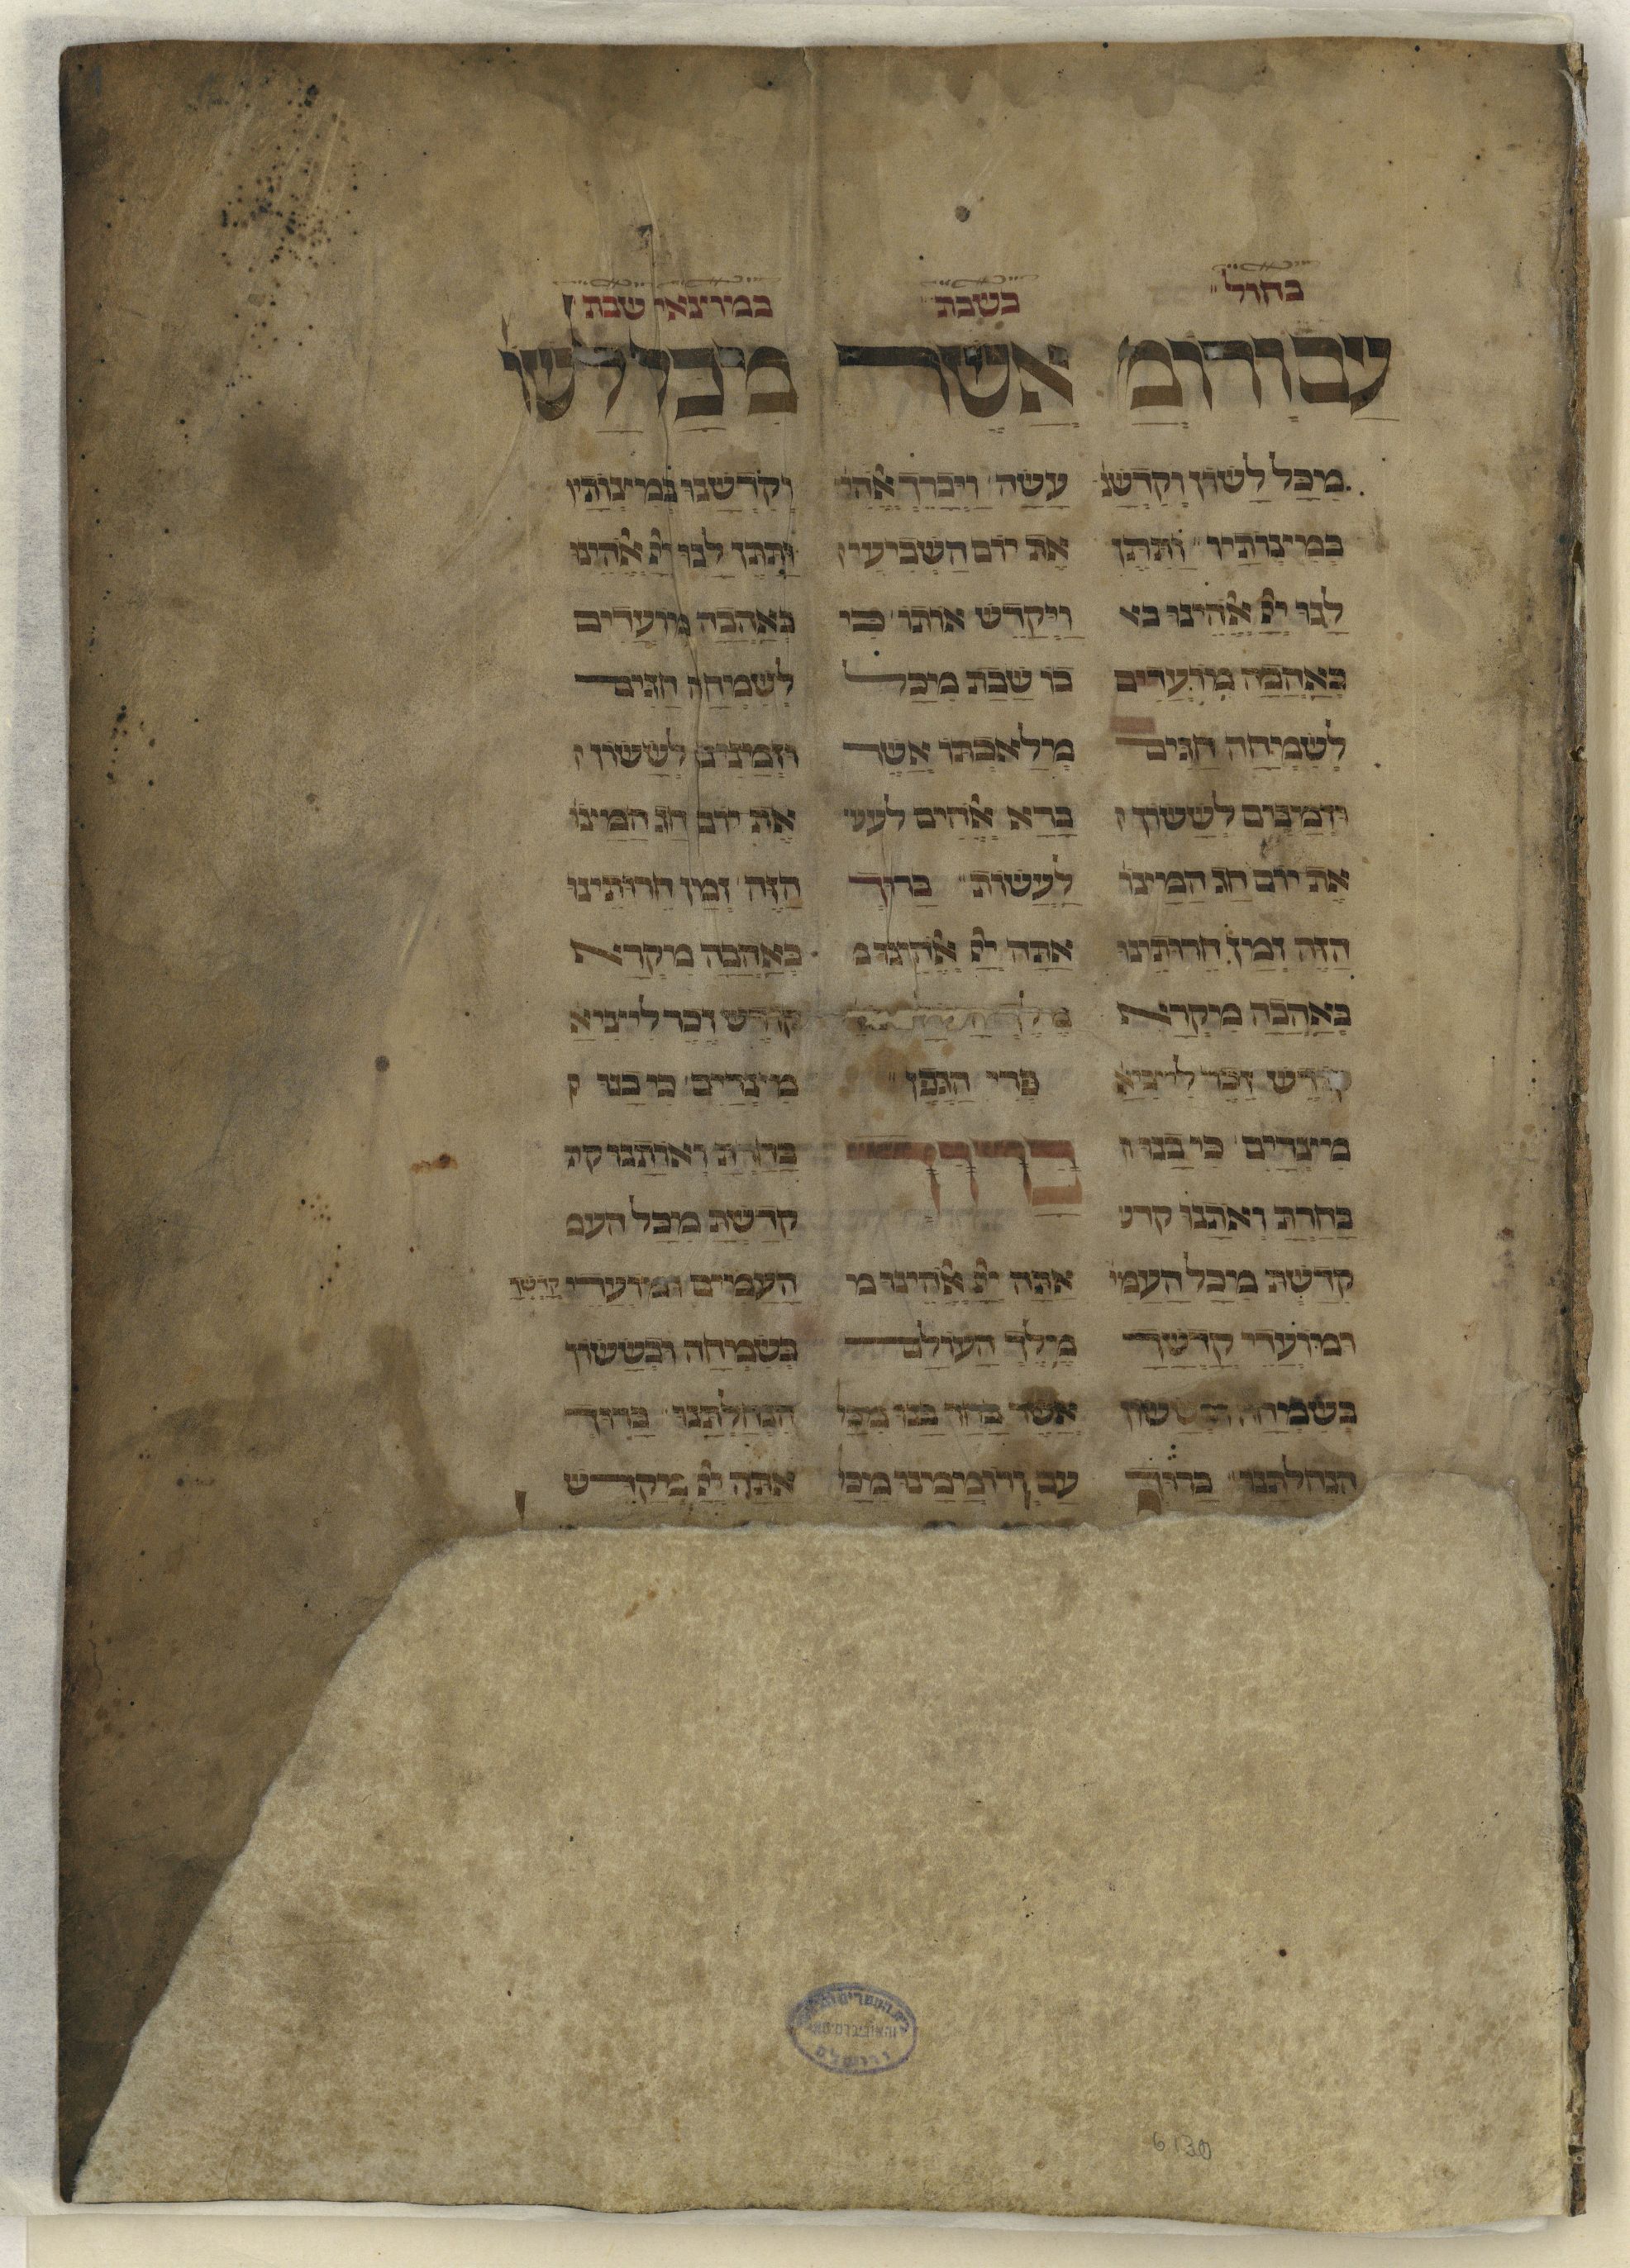 בחול
עם ורוממ
מכל לשון וקדשנ
במיצותיו ותתן
לנו יי אלהינו בא
באהבה מועדים
לשמחה חגים
וזמנים לששון ו
את יום חג המצו
הזה זמן חרותינו
באהבה מקרא
קדש זכר ליציא
מיצרים כי בנו ו
בחרת ואתנו קדש
קדשת מכל העמי
ומועדי קדשך
בשמחה ובששון
הנחלתנו ברוך
בשבת
אשר
עשה ויברך אלהי
את יום השביעי ו
ויקדש אותו כי
בו שבת מכל
מלאכתו אשר
ברא אלהים לעש
לעשות ברוך
אתה יי אלהינו מ
פרי הגפן
ברוך
אתה יי אלהינו מ
מלך העולם
אשר בחר בנו מכל
עם ורוממנו מכל
במוצאי שבת
מכל לשו
וקדשנו במיצותיו
ותתן לנו יי אלהינו
באהבה מועדים
לשמחה חגים
וזמנים לששון ו
את יום חג המצו
הזה זמן חרותינו
באהבה מקרא
קודש זכר ליציא
מיצרים כי בנו
בחרת ואותנו קד
קדשת מכל העמ
העמים ומועדי קדשך
בשמחה ובששון
הנחלתנו ברוך
אתה יי מקדש
6130